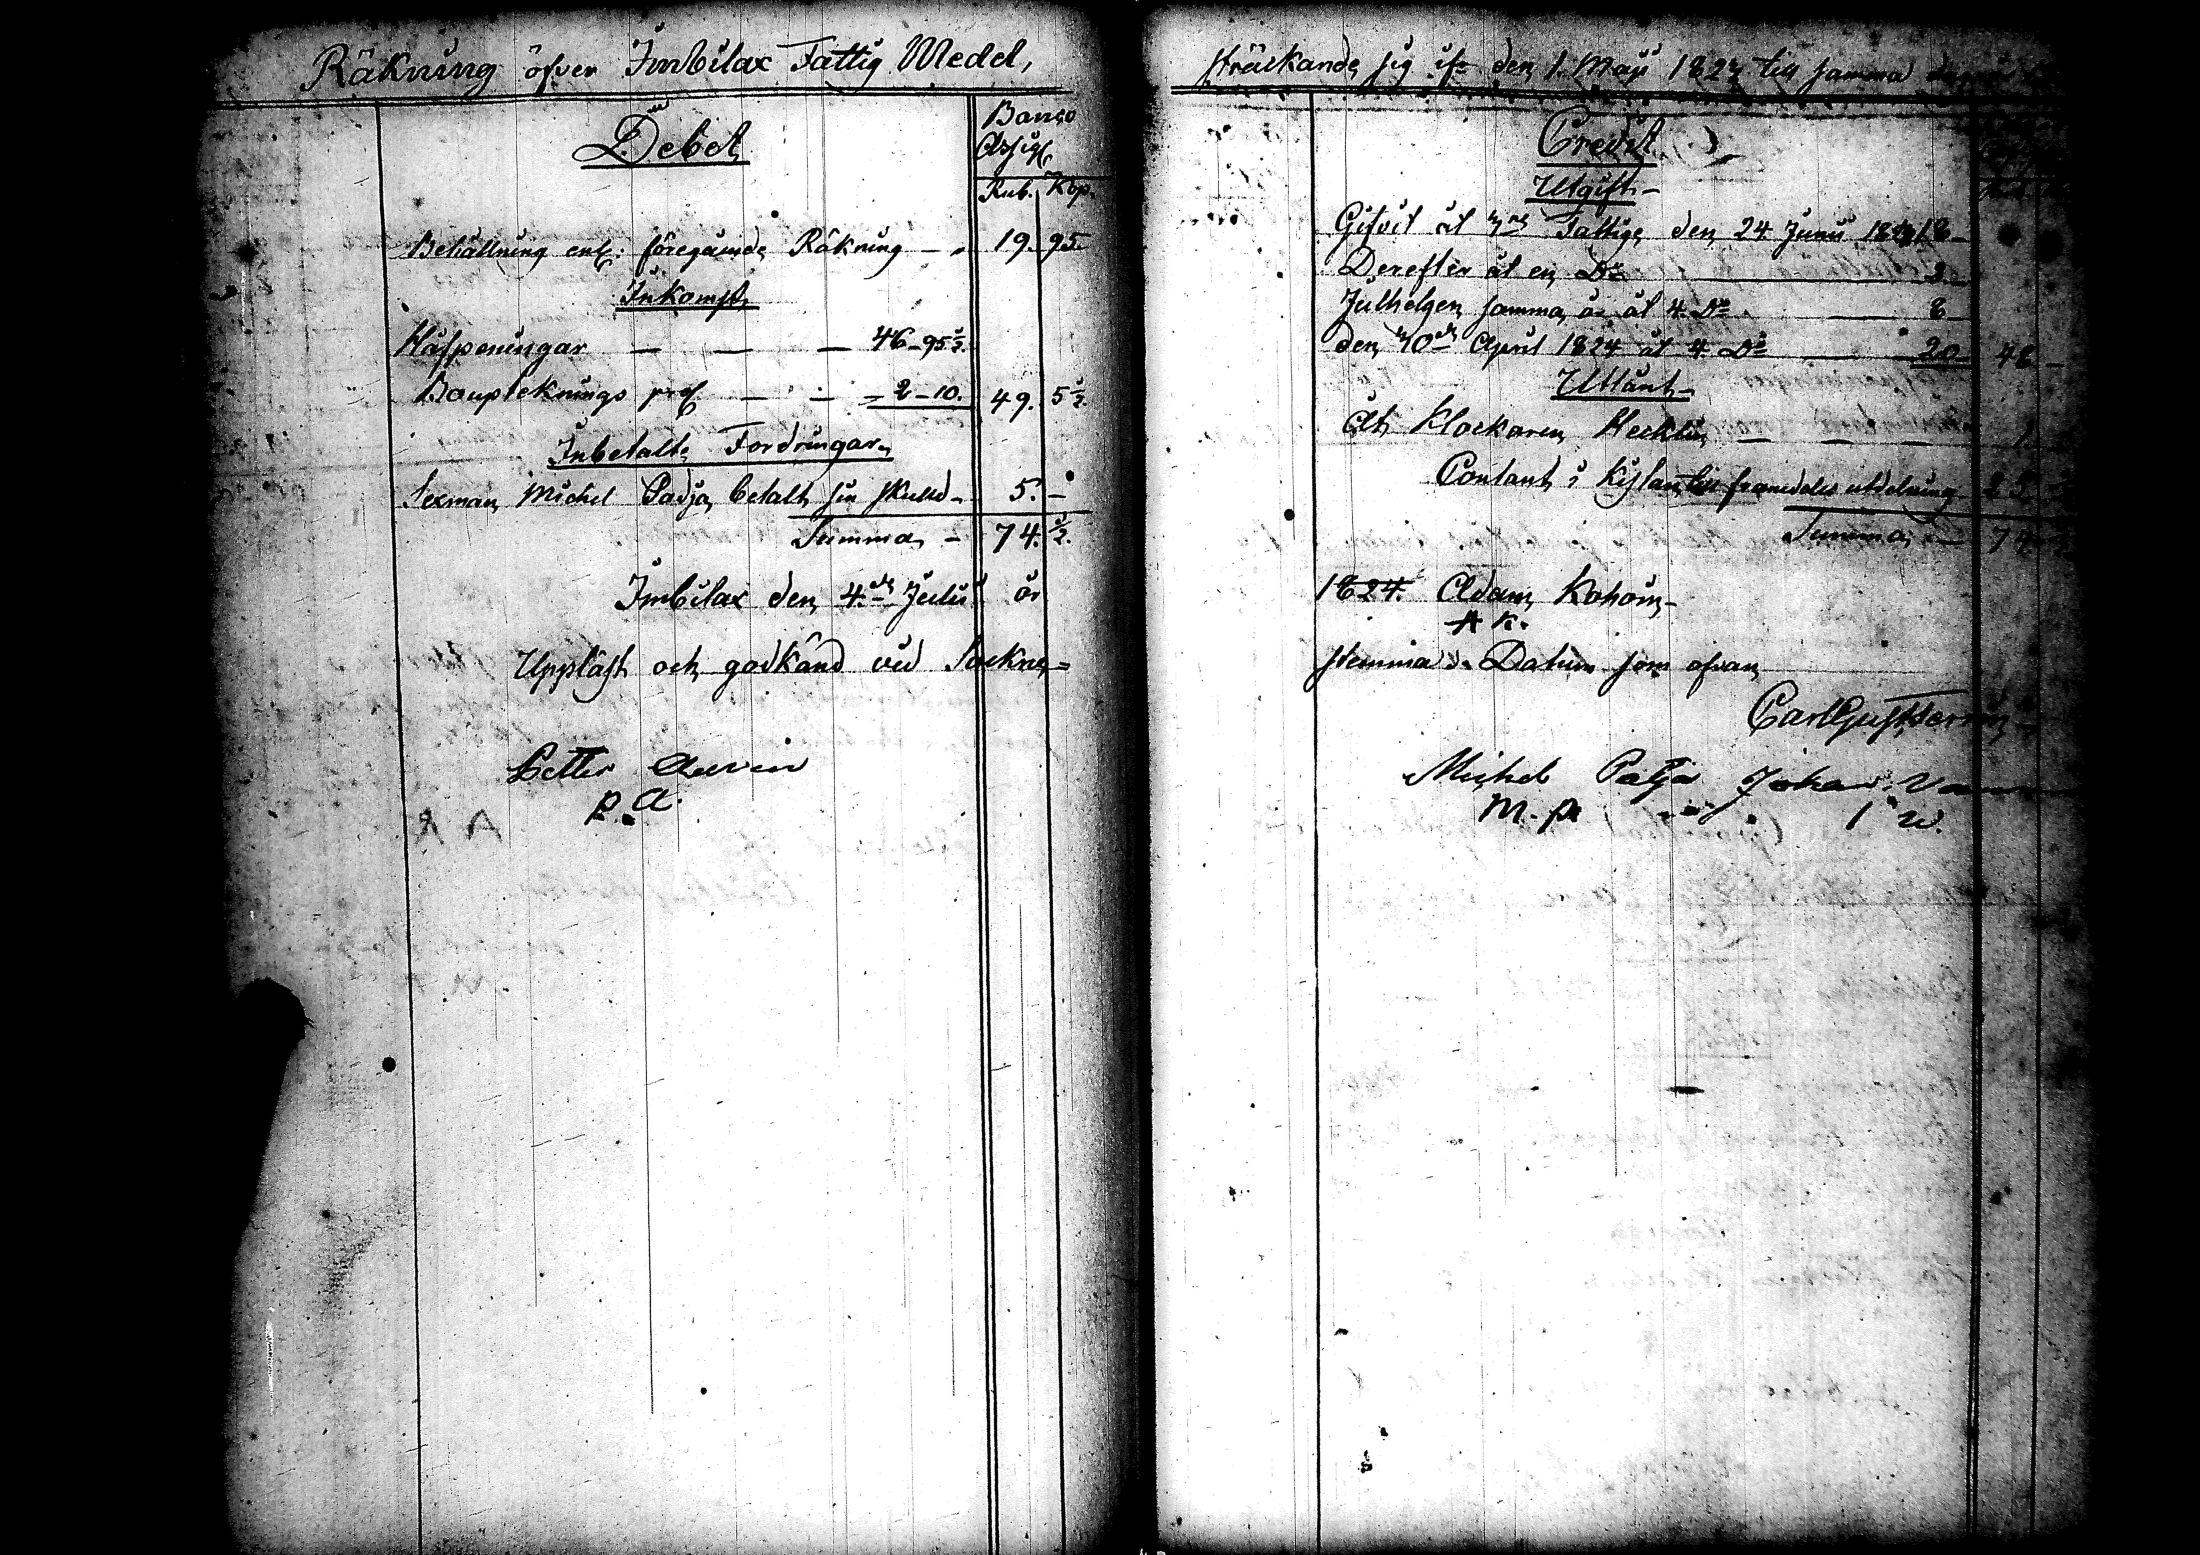 Räkning öfver Imbilax Fattig Medel,
Debet
Banco
Assign
Rub. Kop.
Behållning enl: föregående Räkning — „ 19. 95.
Inkomst
Håfpeningar — — — 46–95½
— — 2–10. 49. 5½.
Inbetalte Fordringar
Sexman Michel Padja betalt sin skuld – 5. –
Summa – 74. ½.
Imbilax den 4.de Julii år
Uppläst och godkänd vid Sockne=
Petter
p. A.
sträckande sig ifr. den 1. Maji 1823 til samma
Credit
Utgift –
Gifvit åt 3ne Fattige den 24 Junii 1823 18 –
Derefter åt en Do 2 –
Julhelgen samma år åt 4 Do — 8 –
den 30de April 1824 åt 4 Do — 20 – 48 –
Utlånt –
åt Klockaren Hecklin — — — 1
Contant i Kistan til framdeles utdelning 25
Summa — 74
1824. Adam Kohom –
A K.
stemma. Datum som ofvan
Carl Gust.
Michel Patja Johan
M. p 1 w.